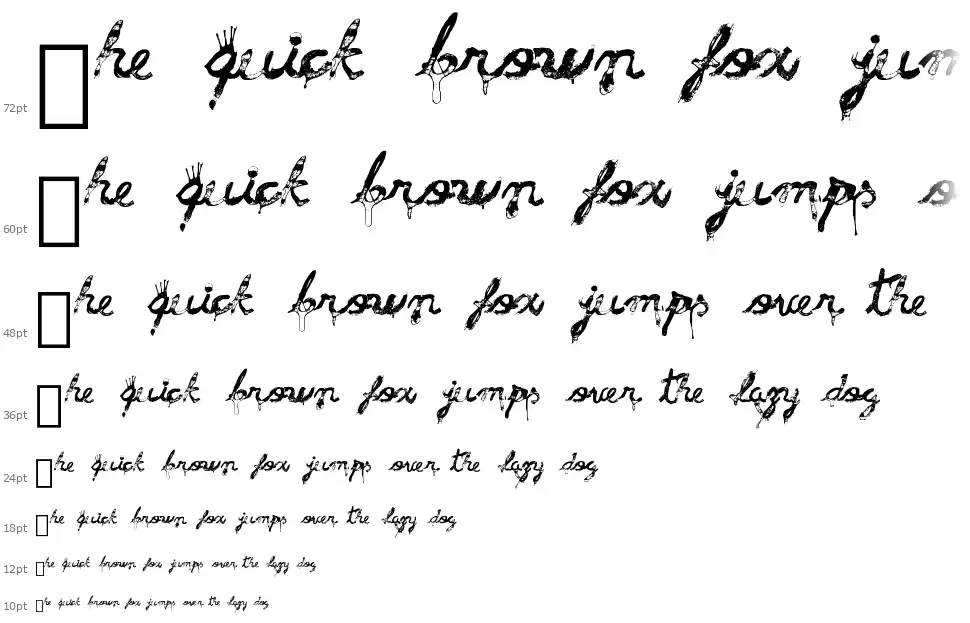 72pt □he quick brown fox jum
60pt □he quick brown fox jumps o
48pt □he quick brown fox jumps over the
36pt □he quick brown fox jumps over the lazy dog
24pt □he quick brown fox jumps over the lazy dog
18pt □he quick brown fox jumps over the lazy dog
12pt □he quick brown fox jumps over the lazy dog
10pt □he quick brown fox jumps over the lazy dog